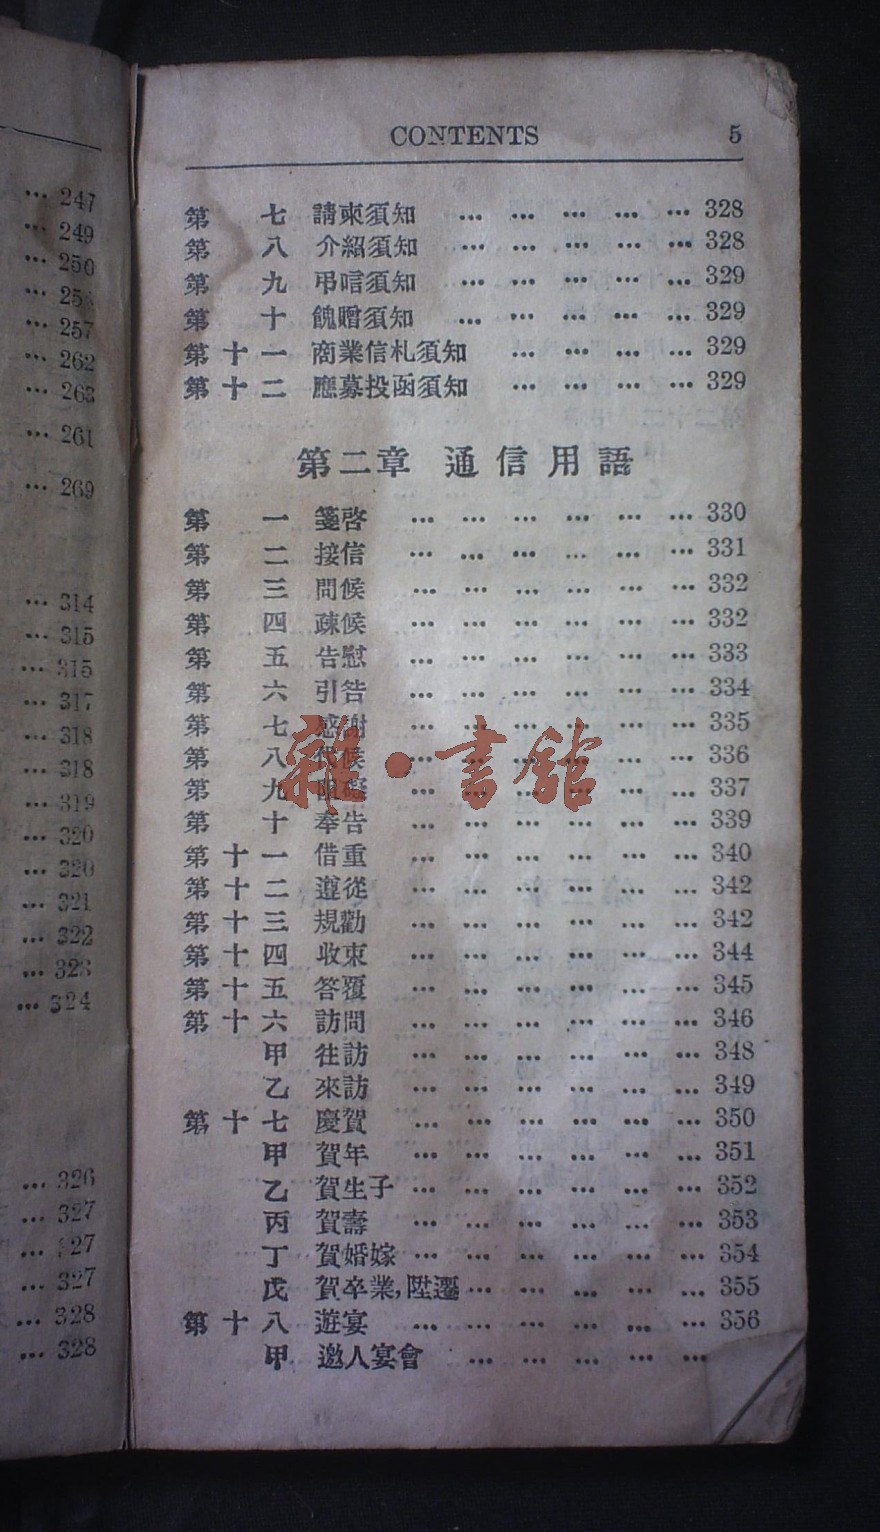 ... 247
... 249
... 250
... 257
... 262
... 263
... 261
... 269
... 314
... 315
... 315
... 317
... 318
... 318
... 319
... 320
... 320
... 321
... 322
... 323
... 324
... 326
... 327
... 327
... 327
... 328
... 328
CONTENTS 5
第 七 請柬須知 ... ... ... ... ... 328
第 八 介紹須知 ... ... ... ... ... 328
第 九 弔唁須知 ... ... ... ... ... 329
第 十 餽贈須知 ... ... ... ... ... 329
第十一 商業信札須知 ... ... ... ... 329
第十二 應募投函須知 ... ... ... ... 329
第二章 通信用語
第 一 箋啓 ... ... ... ... ... ... 330
第 二 接信 ... ... ... ... ... ... 331
第 三 問候 ... ... ... ... ... ... 332
第 四 疎候 ... ... ... ... ... ... 332
第 五 告慰 ... ... ... ... ... ... 333
第 六 引咎 ... ... ... ... ... ... 334
第 七 感謝 ... ... ... ... ... ... 335
第 八 代候 ... ... ... ... ... ... 336
第 九 阻礙 ... ... ... ... ... ... 337
第 十 奉告 ... ... ... ... ... ... 339
第十一 借重 ... ... ... ... ... ... 340
第十二 遵從 ... ... ... ... ... ... 342
第十三 規勸 ... ... ... ... ... ... 342
第十四 收束 ... ... ... ... ... ... 344
第十五 答覆 ... ... ... ... ... ... 345
第十六 訪問 ... ... ... ... ... ... 346
甲 往訪 ... ... ... ... ... ... 348
乙 來訪 ... ... ... ... ... ... 349
第十七 慶賀 ... ... ... ... ... ... 350
甲 賀年 ... ... ... ... ... ... 351
乙 賀生子 ... ... ... ... ... ... 352
丙 賀壽 ... ... ... ... ... ... 353
丁 賀婚嫁 ... ... ... ... ... ... 354
戊 賀卒業,陞遷 ... ... ... ... ... 355
第十八 遊宴 ... ... ... ... ... ... 356
甲 邀人宴會 ... ... ... ... ...
雜·書館